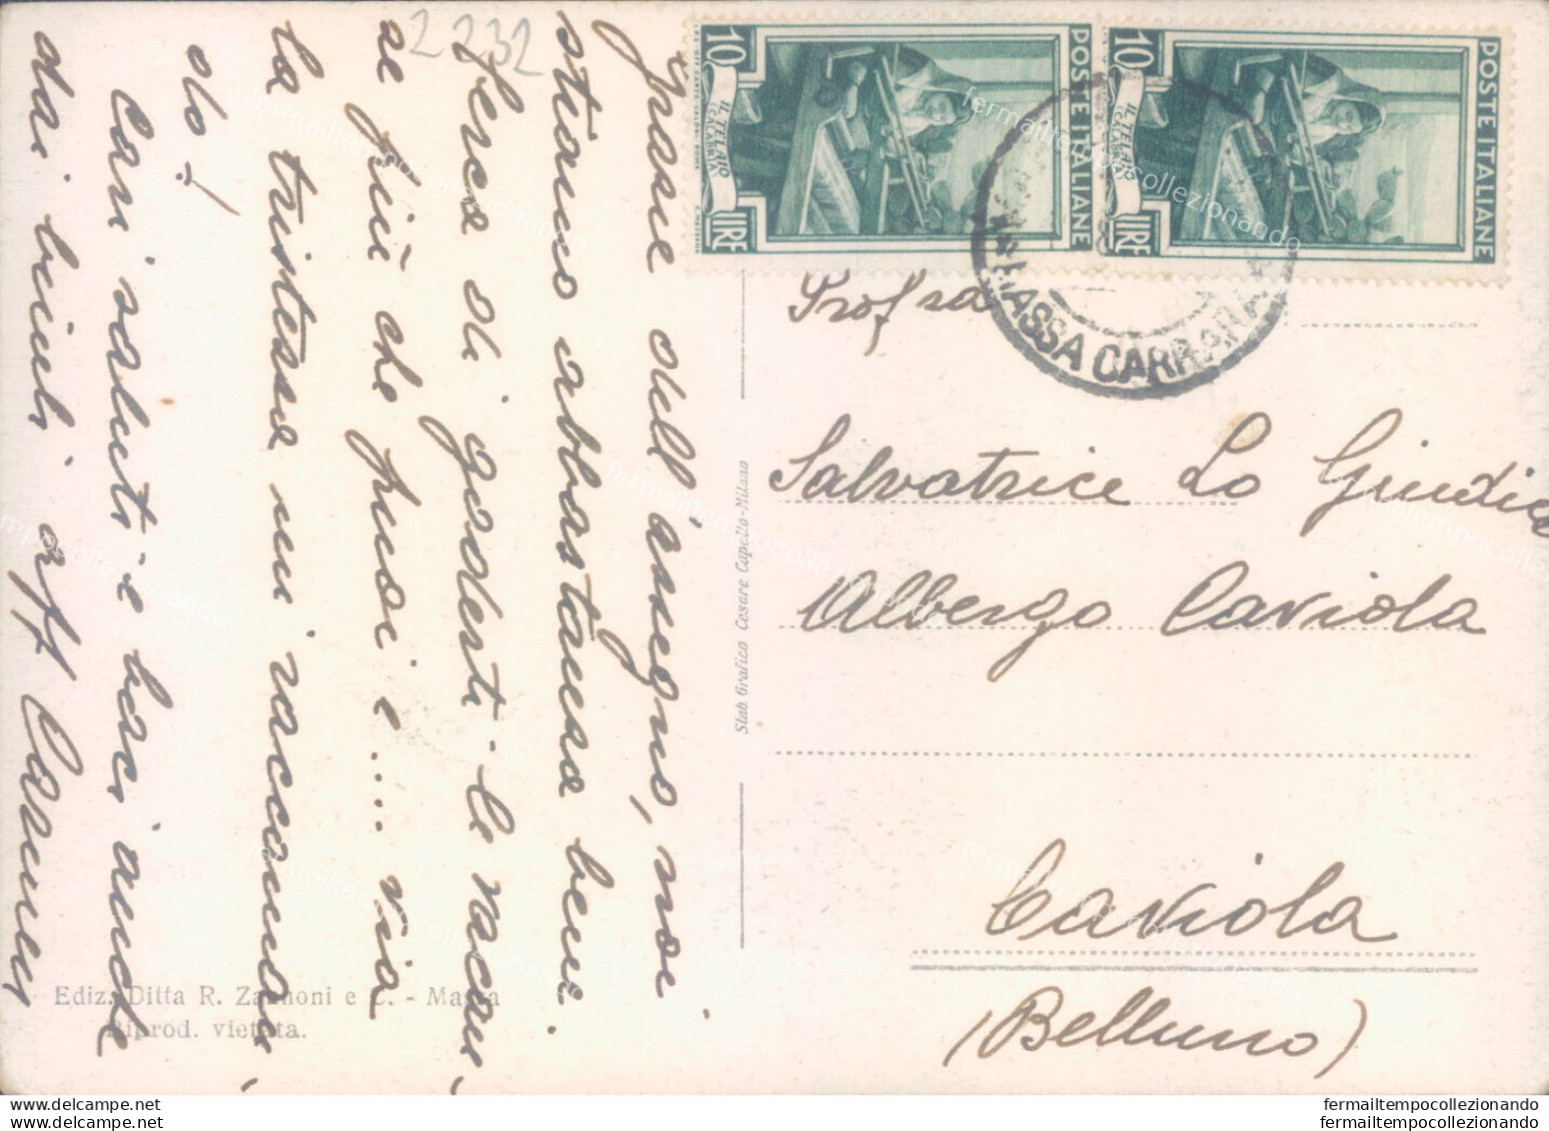 2232
Grazie dell'assegno, noi
stiamo abbastanza bene.
Cerca di goderti le vacan-
ze più che puoi e.... via
la tristezza mi raccoman-
do!
Cari saluti e baci anche
dai bimbi aff Carmen
Ediz. Ditta R. Zannoni e C. - Massa
Riprod. vietata.
Stab. Grafico Cesare Capello-Milano
POSTE ITALIANE
10
LIRE
IL TELAIO
(CALABRIA)
POSTE ITALIANE
10
LIRE
IL TELAIO
(CALABRIA)
MASSA CARRARA
Prof.ssa
Salvatrice Lo Giudice
Albergo Caviola
Caviola
(Belluno)
fermailtempocollezionando
fermailtempocollezionando.com
fermailtempocollezionando
fermailtempocollezionando.com